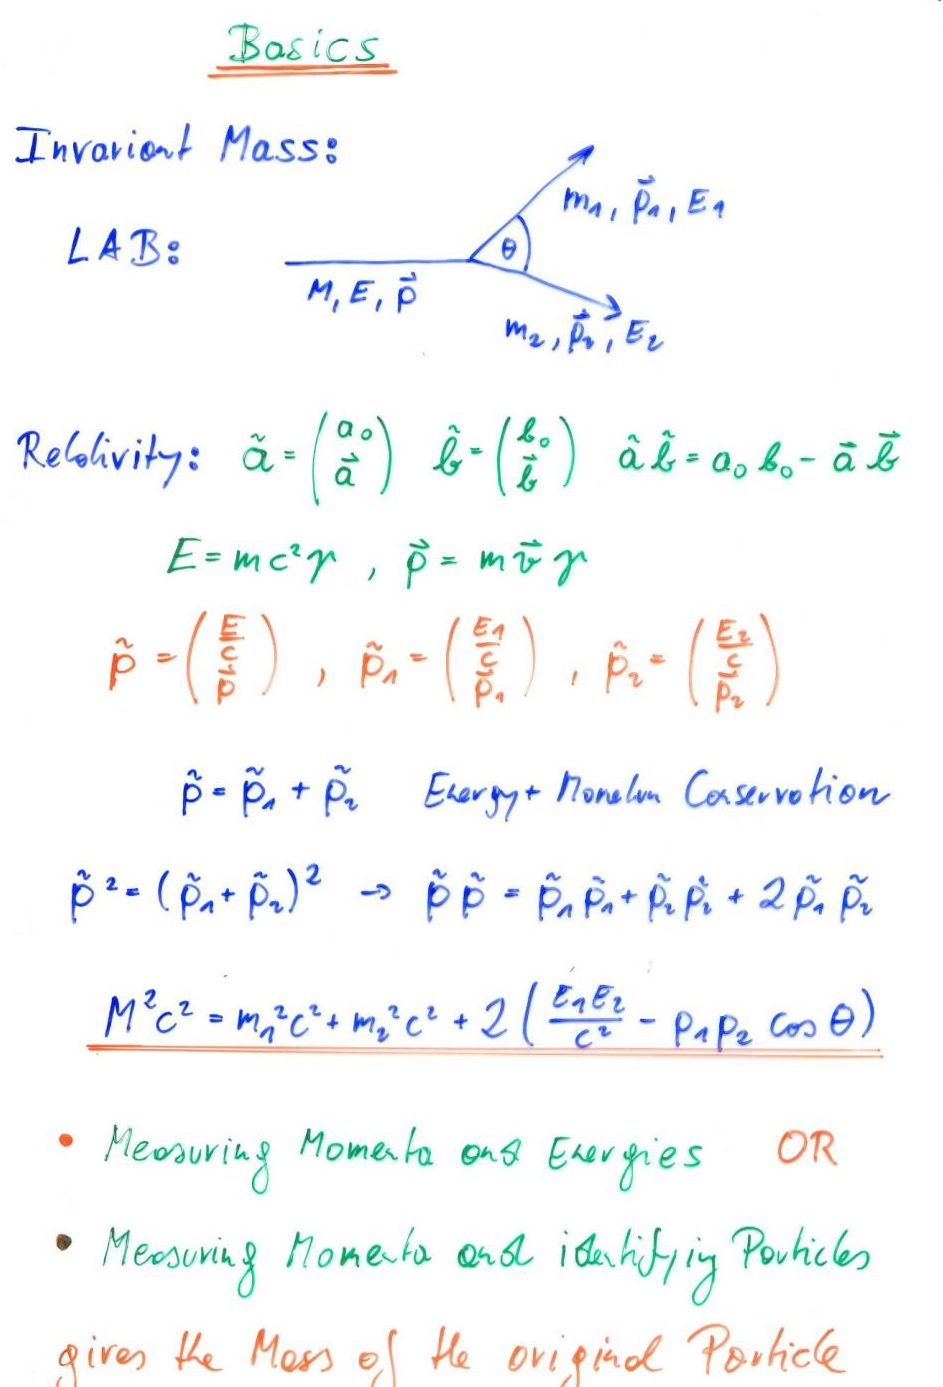 Basics
Invariant Mass:
m₁, p⃗₁, E₁
LAB:
θ
M, E, p⃗
m₂, p⃗₂, E₂
Relativity: ã = (a₀ a⃗) b̃ = (b₀ b⃗) ã b̃ = a₀ b₀ - a⃗ b⃗
E = mc²γ , p⃗ = m v⃗ γ
p̃ = (E/c p⃗) , p̃₁ = (E₁/c p⃗₁) , p̃₂ = (E₂/c p⃗₂)
p̃ = p̃₁ + p̃₂ Energy + Momentum Conservation
p̃² = (p̃₁ + p̃₂)² → p̃ p̃ = p̃₁ p̃₁ + p̃₂ p̃₂ + 2 p̃₁ p̃₂
M²c² = m₁²c² + m₂²c² + 2 (E₁E₂/c² - p₁p₂ cos θ)
• Measuring Momenta and Energies OR
• Measuring Momenta and identifying Particles
gives the Mass of the original Particle